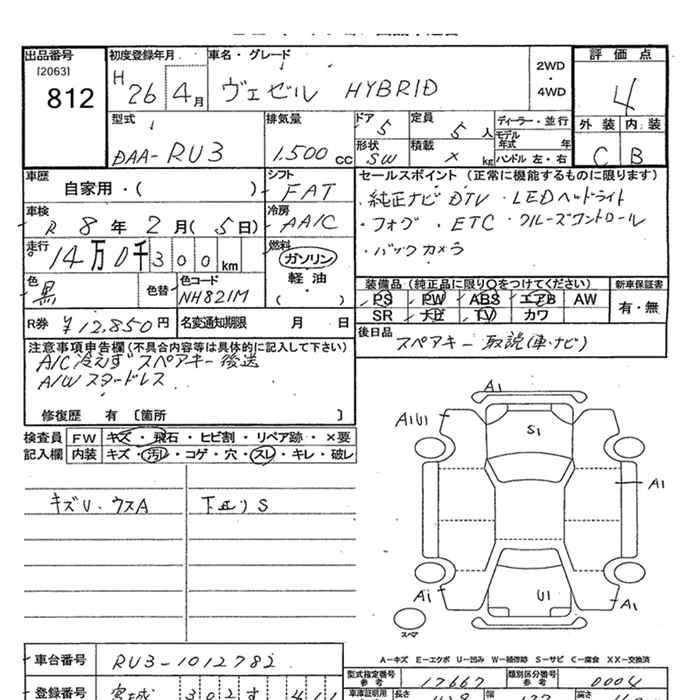 出品番号 [2063] 812
初度登録年月 H 26 4月
車名・グレード ヴェゼル HYBRID
2WD・4WD
評価点 4
外装 C 内装 B
型式 DAA-RU3
排気量 1.500 cc
ドア 5
定員 5人
形状 SW
積載 × kg
ディーラー・並行
モデル年式 年
ハンドル 左・右
車歴 自家用・( )
シフト FAT
車検 R 8年 2月(5日)
冷房 AAIC
走行 14万0千300km
燃料 ガソリン 軽油 ( )
色 黒
色替
色コード NH821M
R券 ¥12,850円
名変通知期限 月 日
セールスポイント (正常に機能するものに限ります)
・純正ナビ DTV・LEDヘッドライト
・フォグ・ETC・クルーズコントロール
・バックカメラ
装備品 (純正品に限り○をつけてください)
PS PW ABS エアB AW
SR ナビ TV カワ
新車保証書 有・無
後日品 スペアキー 取説(車・ナビ)
注意事項申告欄 (不具合内容等は具体的に記入して下さい)
A/C冷えず スペアキー後送
A/W スタッドレス
修復歴 有 〔箇所 〕
検査員記入欄
FW キズ・飛石・ヒビ割・リペア跡・×要
内装 キズ・汚レ・コゲ・穴・スレ・キレ・破レ
キズU・ウスA
下廻りS
A1
A1U1
S1
A1
A1
U1
A1
スペア
A-キズ E-エクボ U-凹み W-補修跡 S-サビ C-腐食 XX-交換済
車台番号 RU3-1012782
型式指定番号 参考 17667
類別区分番号 参考 0004
登録番号 宮城 302 す
車庫証明用
長さ
幅
高さ